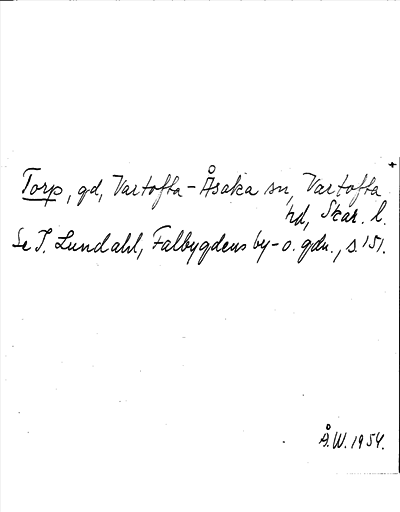 Torp, gd, Vartofta-Åsaka sn, Vartofta
hd, Skar. l.
Se I. Lundahl, Falbygdens by- o. gdn., s. 151.
Å.W. 1954.